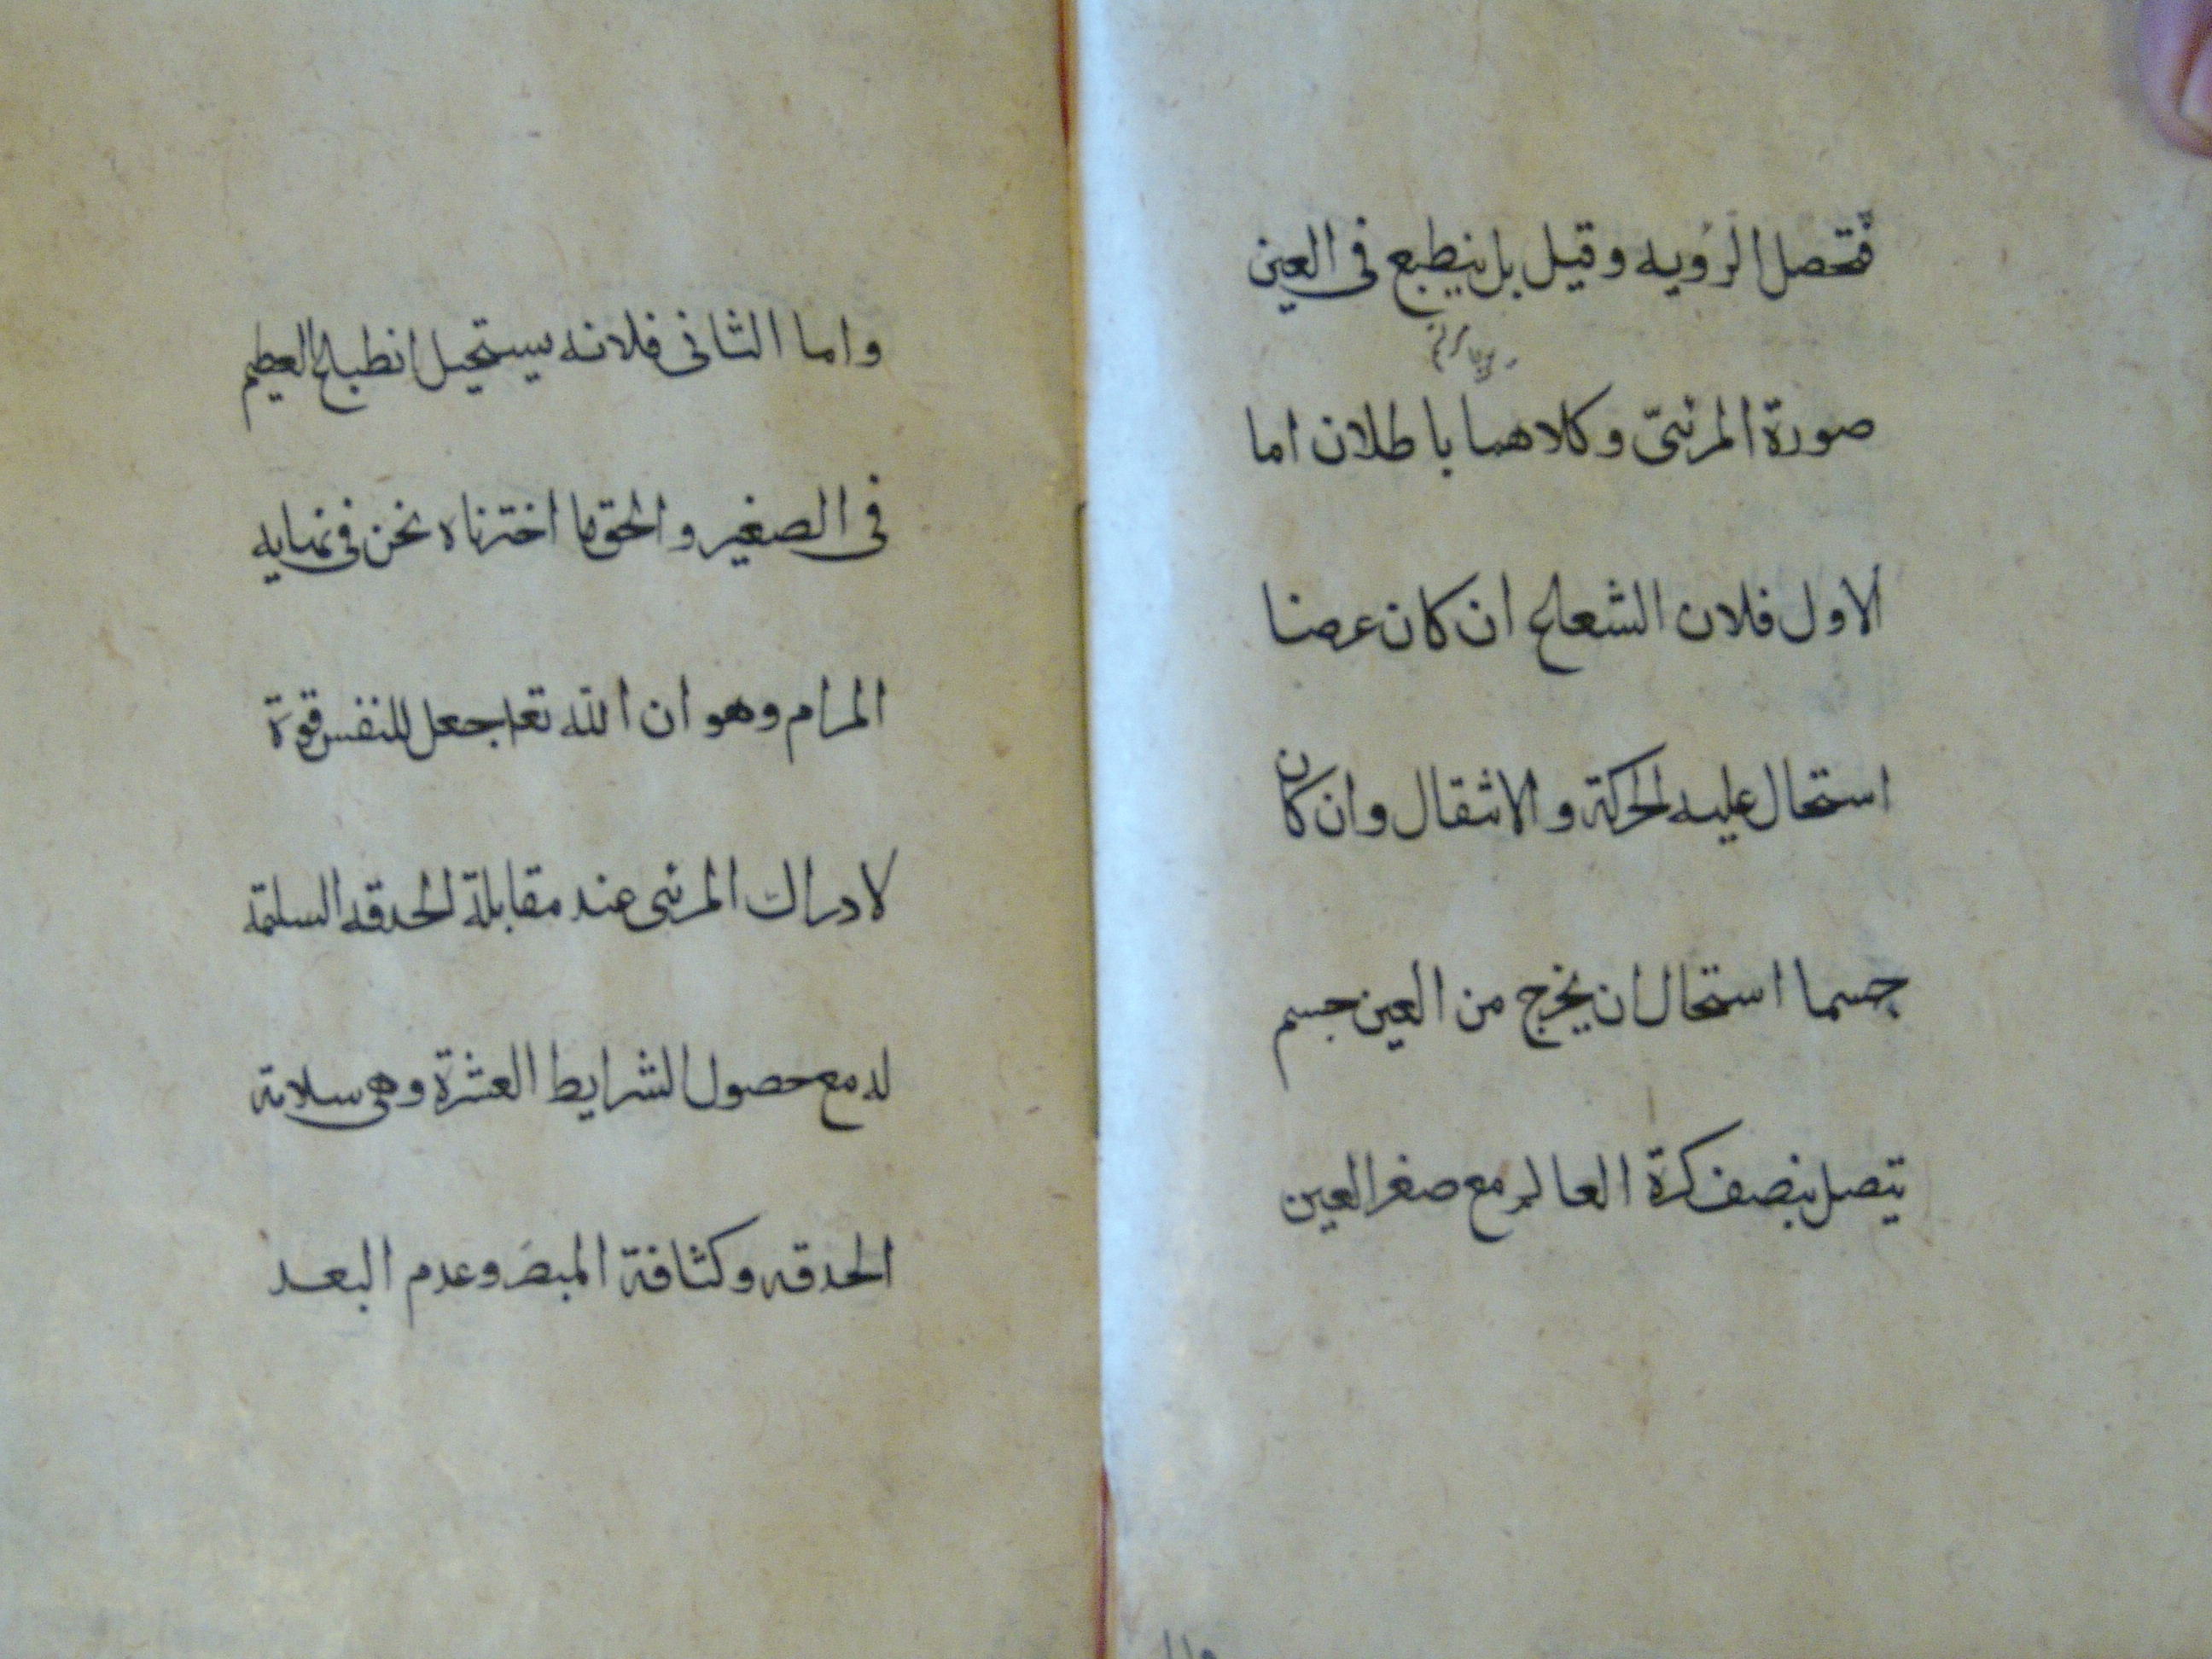 فتحصل الرؤيه وقيل بل ينطبع فى العين
صورة المرئىّ وكلاهما باطلان اما
الاول فلان الشعاع ان كان عرضا
استحال عليه الحركة والانتقال وان كان
جسما استحال ان يخرج من العين جسم
يتصل بنصف كرة العالم مع صغر العين
واما الثانى فلانه يستحيل انطباع العظيم
فى الصغير والحق ما اخترناه نحن فى نهايه
المرام وهو ان الله تعا جعل للنفس قوة
لادراك المرئى عند مقابلة الحدقه السليمة
له مع حصول الشرايط العشرة وهى سلامة
الحدقه وكثافة المبصر وعدم البعد